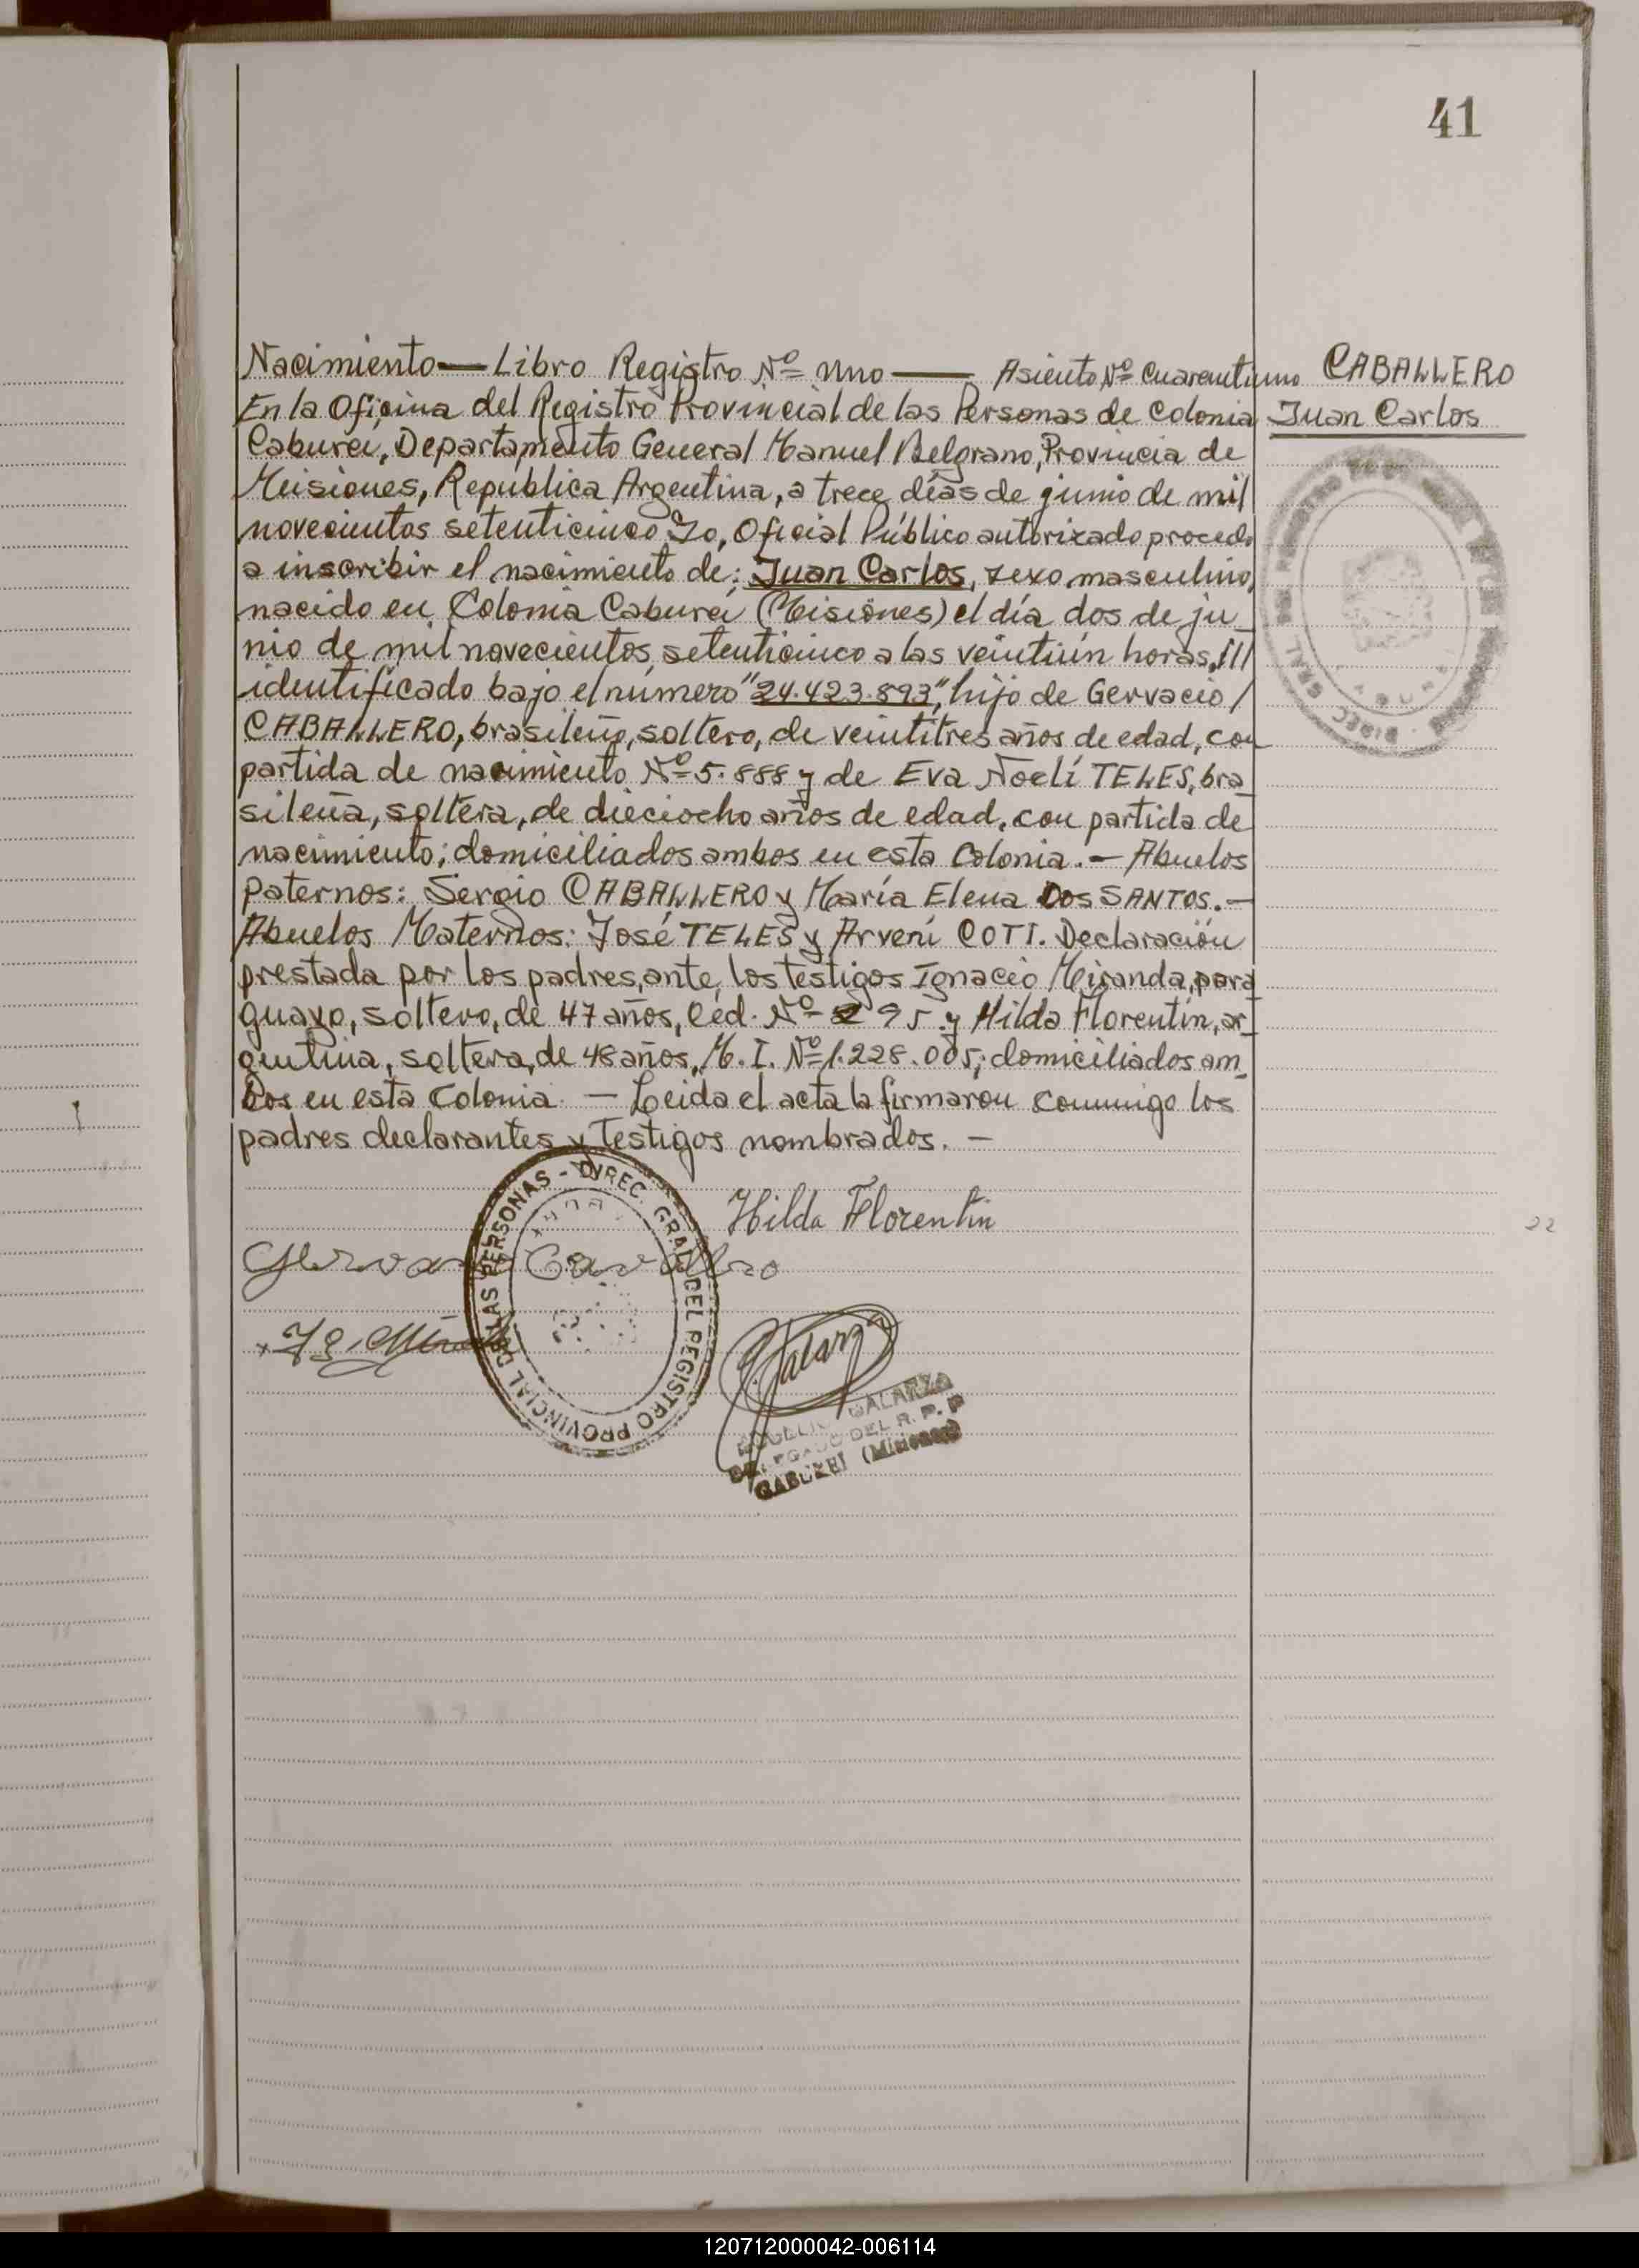 41
Nacimiento — Libro Registro Nº uno — Asiento Nº Cuarentiuno
CABALLERO
Juan Carlos
En la Oficina del Registro Provincial de las Personas de Colonia
Caburei, Departamento General Manuel Belgrano, Provincia de
Misiones, Republica Argentina, a trece días de junio de mil
novecientos setenticinco Yo, Oficial Público autorizado procedo
a inscribir el nacimiento de: Juan Carlos, sexo masculino,
nacido en Colonia Caburei (Misiones) el día dos de ju_
nio de mil novecientos setenticinco a las veintiún horas, ///
identificado bajo el número "24.423.893", hijo de Gervacio /
CABALLERO, brasileño, soltero, de veintitres años de edad, con
partida de nacimiento Nº 5.888 y de Eva Noelí TELES, bra_
sileña, soltera, de dieciocho años de edad, con partida de
nacimiento; domiciliados ambos en esta Colonia. — Abuelos
paternos: Sergio CABALLERO y María Elena DOS SANTOS. —
Abuelos Maternos: José TELES y Arvení COTI. Declaración
prestada por los padres, ante los testigos Ignacio Miranda, para_
guayo, soltero, de 47 años, Céd. Nº 295 y Hilda Florentín, ar_
gentina, soltera, de 48 años, M. I. Nº 1.228.005; domiciliados am_
bos en esta Colonia. — Leida el acta la firmaron conmigo los
padres declarantes y testigos nombrados. —
Hilda Florentin
DIREC. GRAL DEL REGISTRO PROVINCIAL DE LAS PERSONAS -
GALARZA
DEL R. P. P
CABUREI (Misiones)
22
120712000042-006114